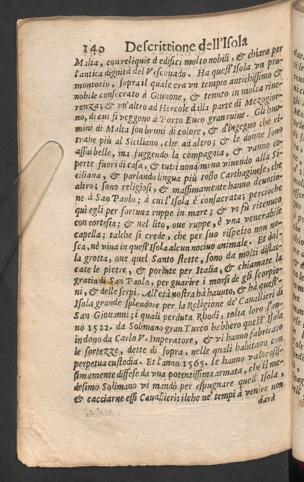 140 Descrittione dell'Isola
Malta, con reliquie d'edifici molto nobili, & chiara per
l'antica dignità del Vescouado. Ha quest'Isola vn pro-
montorio, sopra il quale era vn tempio antichissimo &
nobile consecrato à Giunone, & tenuto in molta riue-
renza; & vn'altro ad Hercole dalla parte di Mezogior-
no, di cui si veggono à Porto Euro gran ruine. Gli huo-
mini di Malta son bruni di colore, & d'ingegno che ri-
trahe più al Siciliano, che ad altro; & le donne sono
assai belle, ma fuggendo la compagnia, & vanno co-
perte fuori di casa, & tutti nondimeno viuendo alla Si-
ciliana, & parlando lingua più tosto Carthaginese, che
altro; sono religiosi, & massimamente hanno deuotio-
ne à San Paolo; à cui l'Isola è consacrata; percioche
quì egli per fortuna ruppe in mare; & vi fù ritenuto
con cortesia; & nel lito, oue ruppe, è vna venerabile
capella; talche si crede, che per suo rispetto non na-
sca, nè viua in quest'Isola alcun nociuo animale. Et dal-
la grotta, oue quel Santo stette, sono da molti distac-
cate le pietre, & portate per Italia, & chiamate la
gratia di San Paolo, per guarire i morsi de gli scorpio-
ni, & delle serpi. All'età nostra hà hauuto, & hà quest'
Isola grande splendore per la Religione de' Cauallieri di
San Giouanni; i quali perduta Rhodi, tolta loro l'an-
no 1522. da Solimano gran Turco hebbero quest' Isola
in dono da Carlo V. Imperatore, & vi hanno fabricato
le fortezze, dette di sopra, nelle quali habitano con
perpetua custodia. Et l'anno 1565. le hanno valorosis-
simamente diffese da vna potentissima armata, che il me-
desimo Solimano vi mandò per espugnare quell'Isola,
& cacciarne essi Cauallieri: ilche ne' tempi à venire non
darà